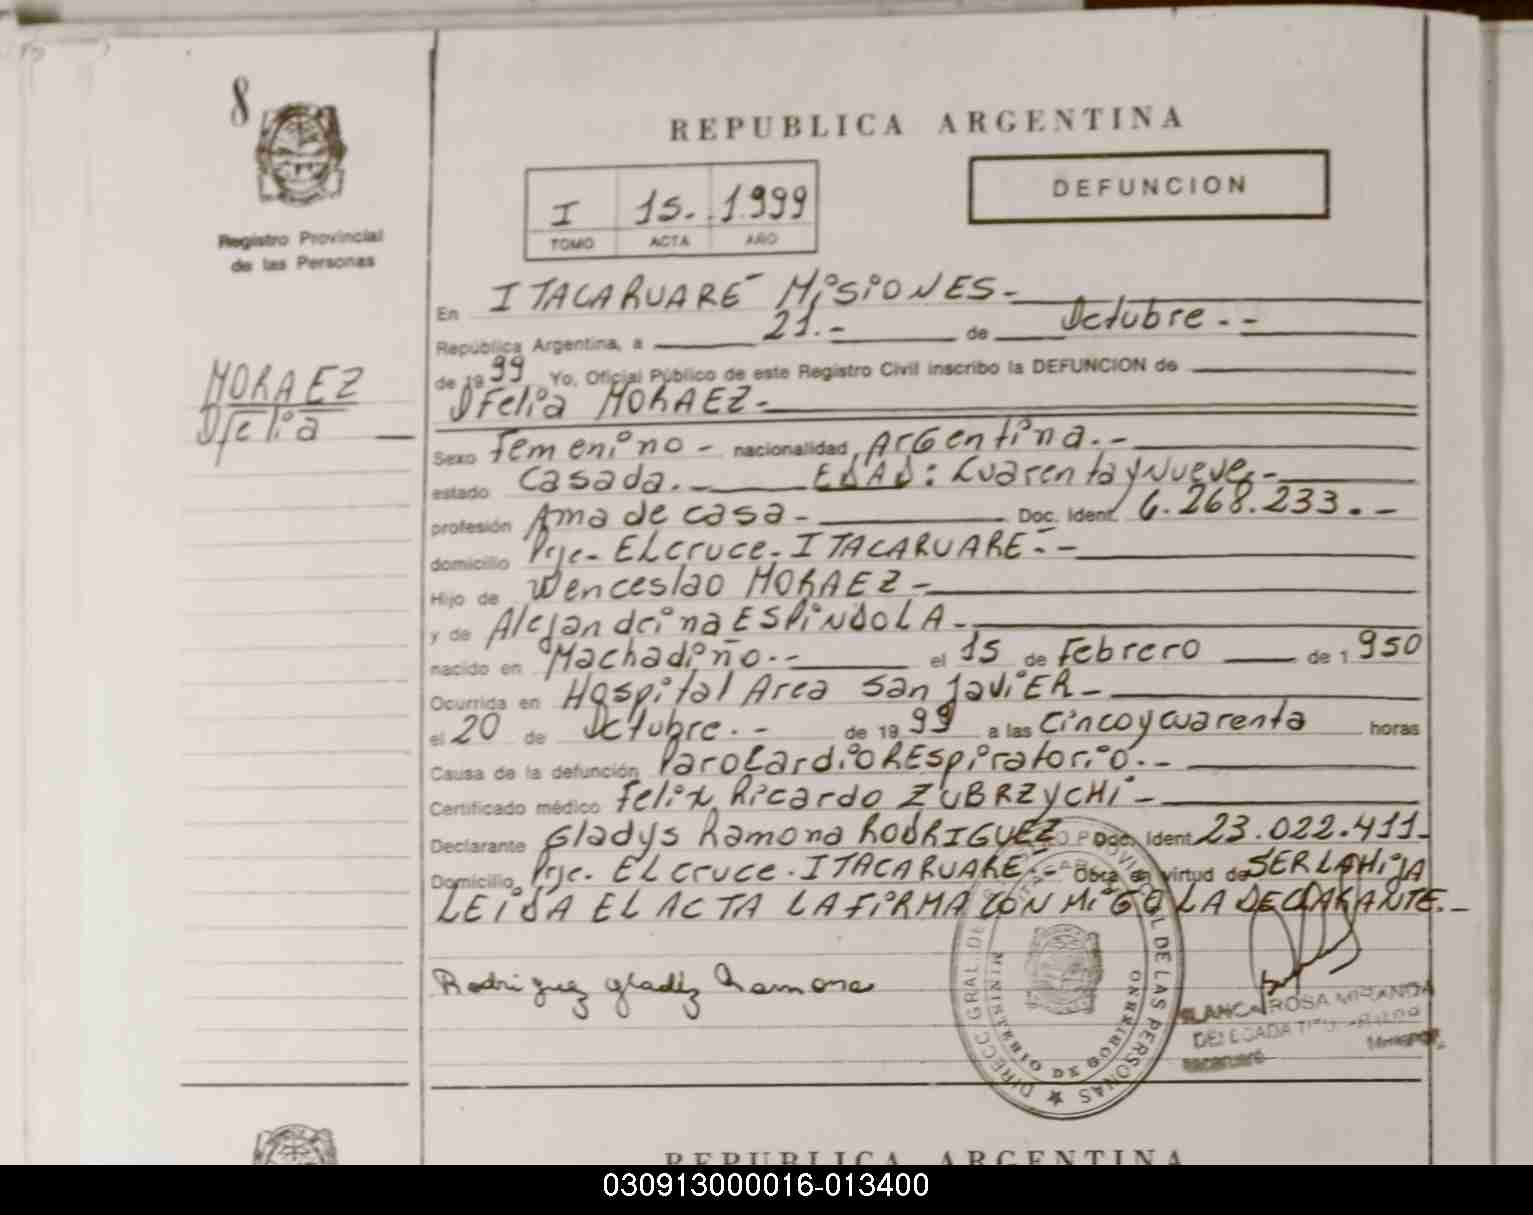 8
Registro Provincial
de las Personas
MORAEZ
Ofelia
REPUBLICA ARGENTINA
I 15. 1.999
TOMO ACTA AÑO
DEFUNCION
En ITACARUARE MiSiONES-
República Argentina, a 21.- de Octubre.--
de 1999 Yo, Oficial Público de este Registro Civil inscribo la DEFUNCION de
OFelia MORAEZ-
Sexo Femenino- nacionalidad ArGentina.-
estado Casada.- EDAD: Cuarenta y Nueve.-
profesión Ama de casa- Doc. Ident. 6.268.233.-
domicilio Prje- EL cruce- ITACARUARE.-
Hijo de Wenceslao MORAEZ-
y de Alejandrina ESPiNDOLA-
nacido en Machadiño.-- el 15 de Febrero de 1950
Ocurrida en Hospital Area San JaviER-
el 20 de Octubre.- de 1999 a las Cinco y cuarenta horas
Causa de la defunción Paro CardioREspiratorio.-
Certificado médico Felix Ricardo ZUBRZYCHi-
Declarante Gladys Ramona RODRIGUEZ Doc. Ident. 23.022.411-
Domicilio Prje. EL cruce. ITACARUARE.- Obra en virtud de SER LA HiJA
LEiDA EL ACTA LA FiRMA CON MiGO LA DECLARANTE.-
Rodriguez gladiz Ramona
DIRECC GRAL. DE PROVINCIAL DE LAS PERSONAS
MINISTERIO DE GOBIERNO
BLANCA ROSA MIRANDA
DELEGADA
Itacaruaré Misiones
REPUBLICA ARGENTINA
030913000016-013400